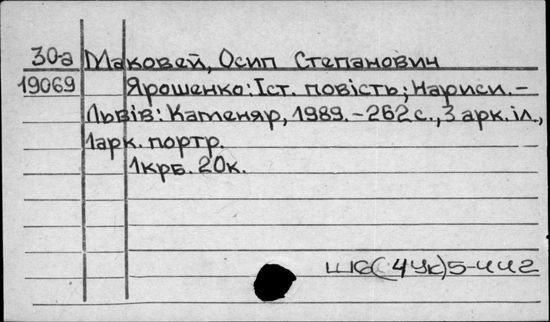 30-а Маковей, Осип Степанович
19069 Ярошенко: Іст. повість; Нариси.-
Львів: Каменяр, 1989.-262 с., 3 арк. іл.,
1арк. портр.
1крб. 20к.
Ш6(4Ук)5-442